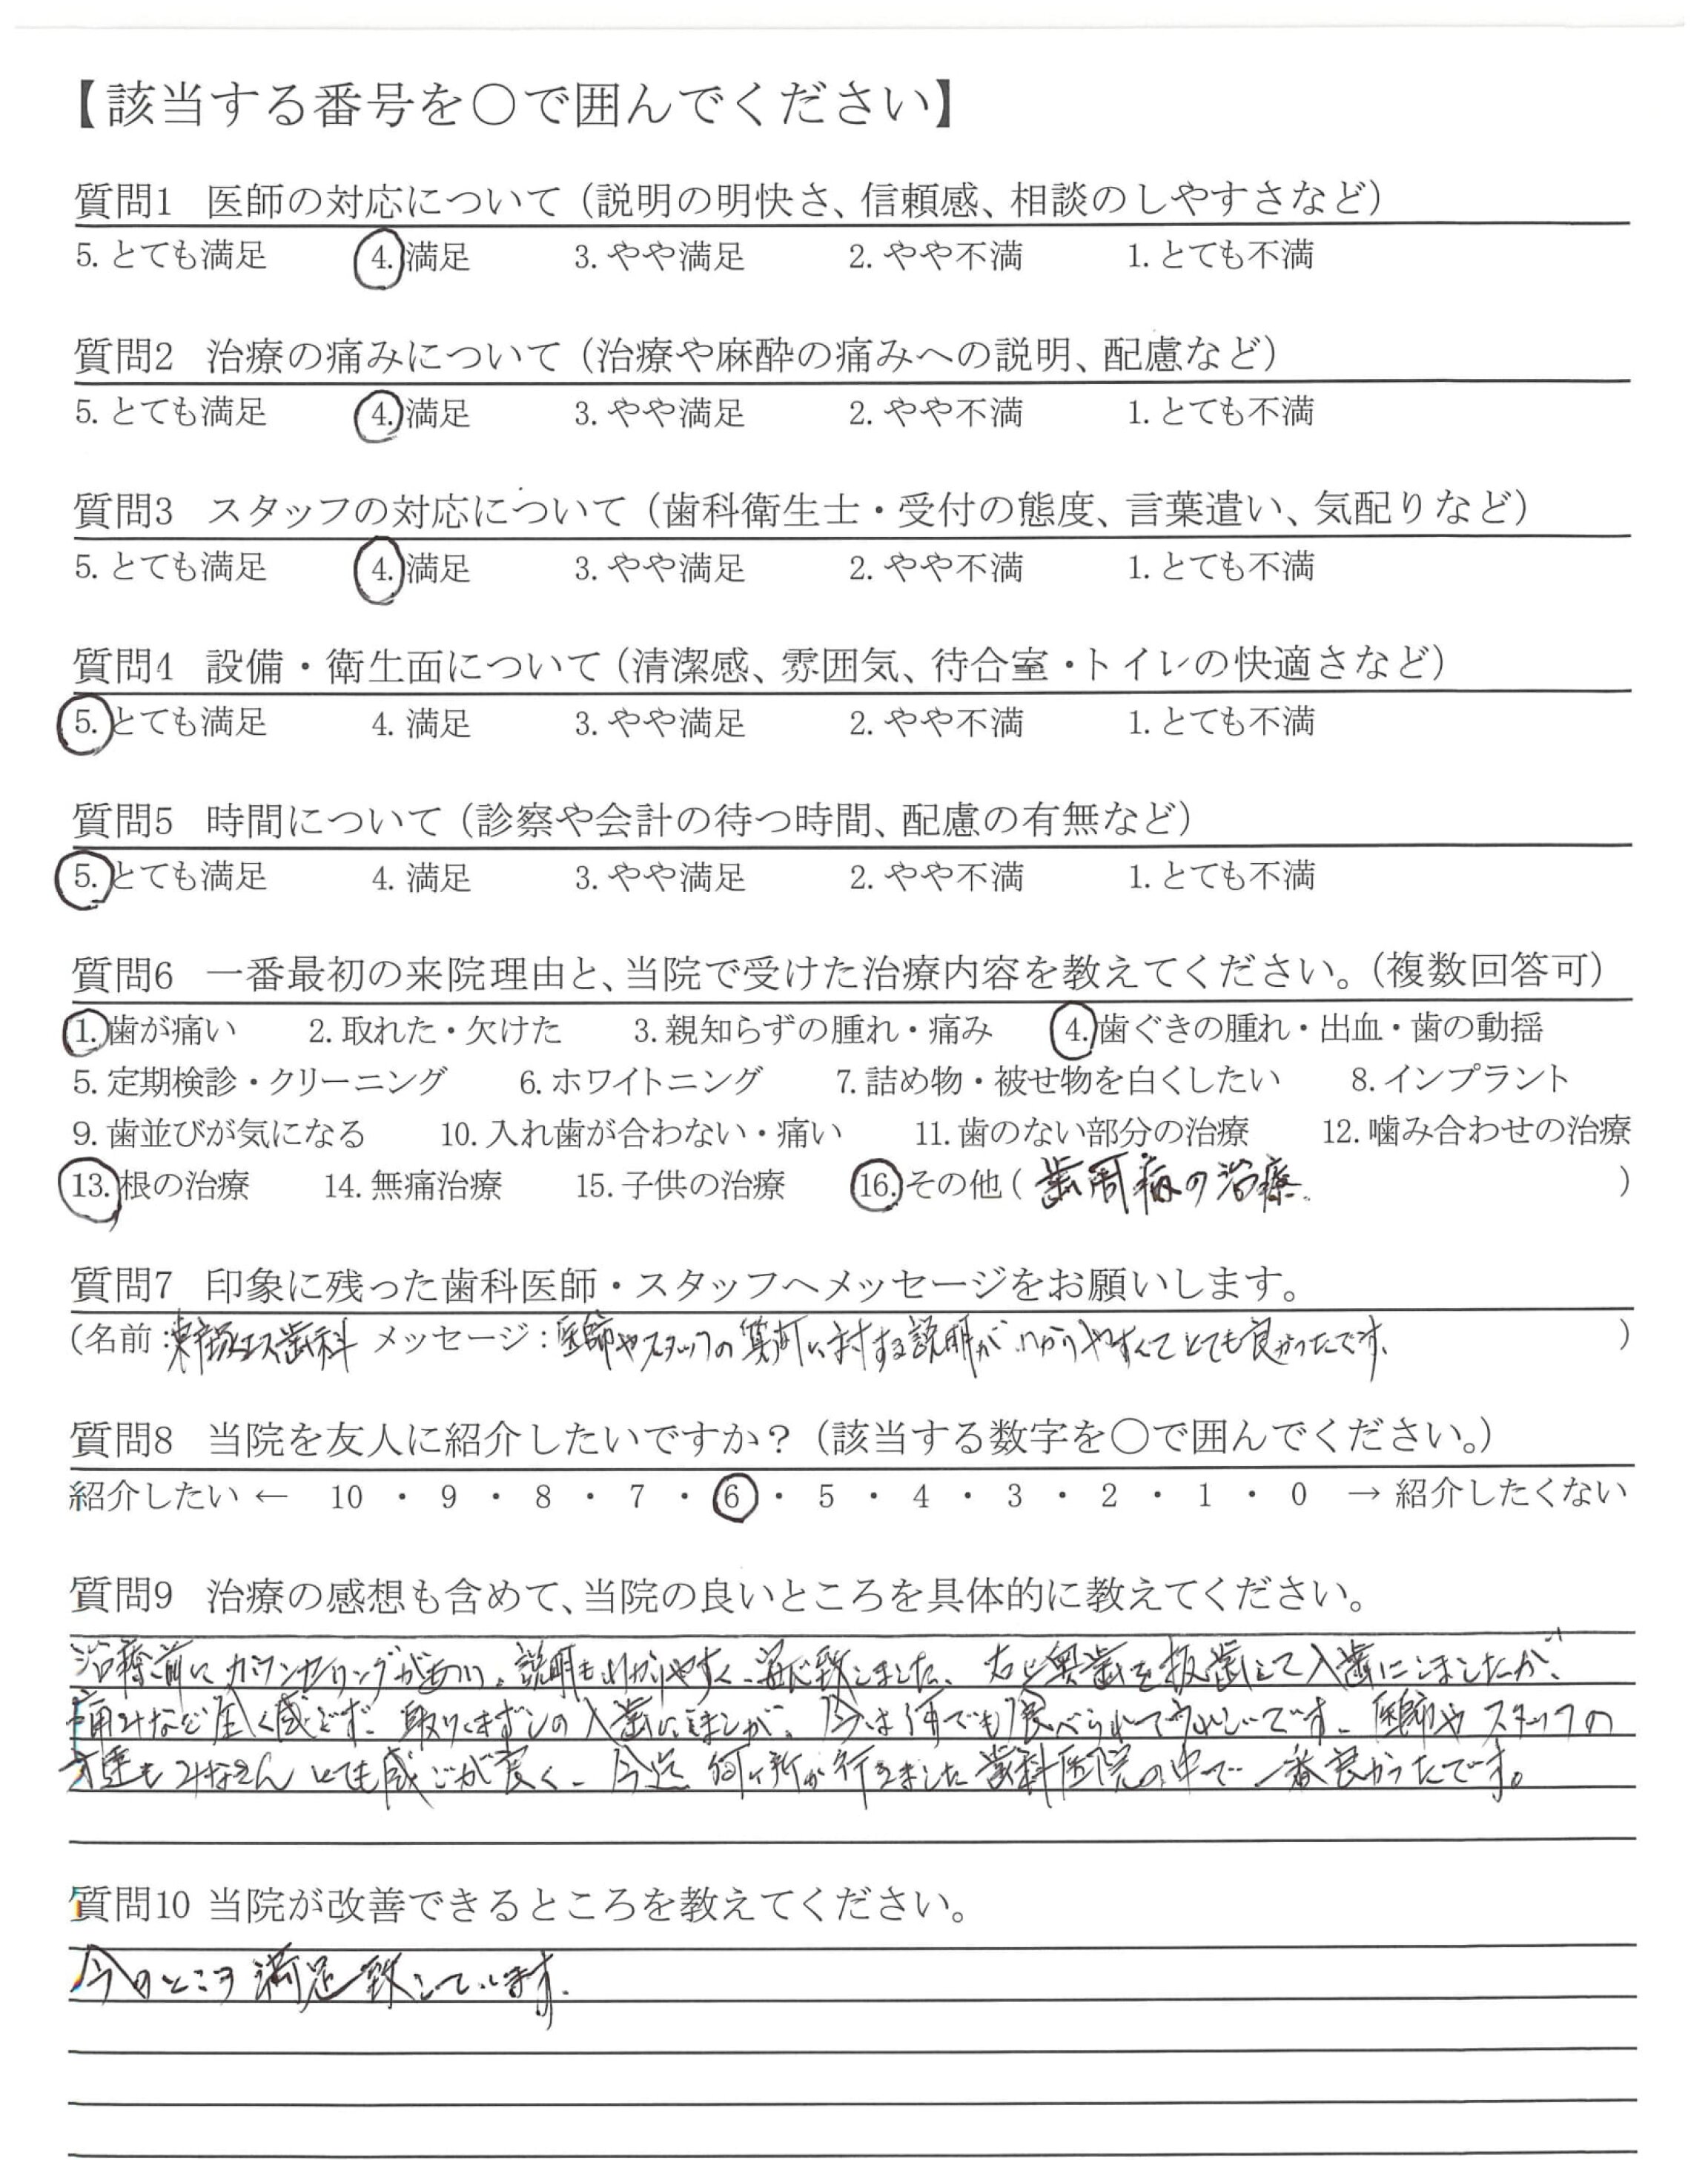 【該当する番号を〇で囲んでください】
質問1 医師の対応について（説明の明快さ、信頼感、相談のしやすさなど）
5. とても満足 4. 満足 3. やや満足 2. やや不満 1. とても不満
質問2 治療の痛みについて（治療や麻酔の痛みへの説明、配慮など）
5. とても満足 4. 満足 3. やや満足 2. やや不満 1. とても不満
質問3 スタッフの対応について（歯科衛生士・受付の態度、言葉遣い、気配りなど）
5. とても満足 4. 満足 3. やや満足 2. やや不満 1. とても不満
質問4 設備・衛生面について（清潔感、雰囲気、待合室・トイレの快適さなど）
5. とても満足 4. 満足 3. やや満足 2. やや不満 1. とても不満
質問5 時間について（診察や会計の待つ時間、配慮の有無など）
5. とても満足 4. 満足 3. やや満足 2. やや不満 1. とても不満
質問6 一番最初の来院理由と、当院で受けた治療内容を教えてください。（複数回答可）
1. 歯が痛い 2. 取れた・欠けた 3. 親知らずの腫れ・痛み 4. 歯ぐきの腫れ・出血・歯の動揺
5. 定期検診・クリーニング 6. ホワイトニング 7. 詰め物・被せ物を白くしたい 8. インプラント
9. 歯並びが気になる 10. 入れ歯が合わない・痛い 11. 歯のない部分の治療 12. 噛み合わせの治療
13. 根の治療 14. 無痛治療 15. 子供の治療 16. その他（歯周病の治療 ）
質問7 印象に残った歯科医師・スタッフへメッセージをお願いします。
（名前： 歯科 メッセージ：医師やスタッフの 対する説明がわかりやすくてとても良かったです。）
質問8 当院を友人に紹介したいですか？（該当する数字を〇で囲んでください。）
紹介したい ← 10 ・ 9 ・ 8 ・ 7 ・ 6 ・ 5 ・ 4 ・ 3 ・ 2 ・ 1 ・ 0 → 紹介したくない
質問9 治療の感想も含めて、当院の良いところを具体的に教えてください。
治療前にカウンセリングがあり。説明もわかりやすく、 致しました。 奥歯を抜歯して入歯にしましたが、
痛みなど全く感じず、取りはずしの入歯に 今は何でも食べられてうれしいです。医師やスタッフの
方達もみなさんとても感じが良く、今迄何ヶ所か行きました歯科医院の中で一番良かったです。
質問10 当院が改善できるところを教えてください。
今のところ満足致しています。